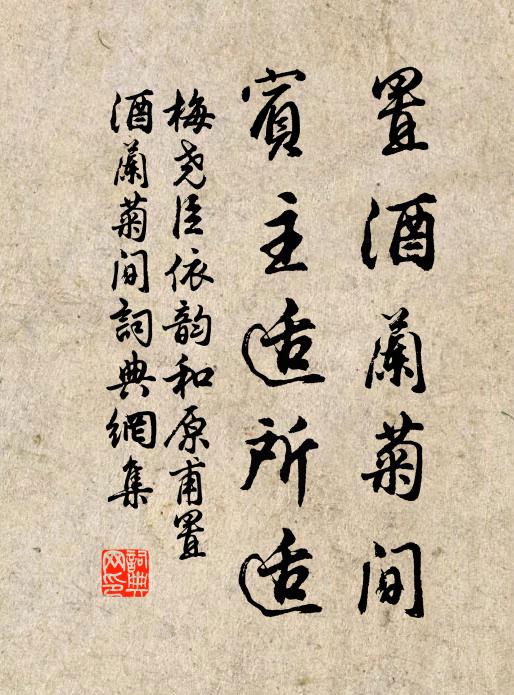 置酒蘭菊间
賓主适所适
梅尧臣依韵和原甫置
酒蘭菊间詞典網集
詞典
网印